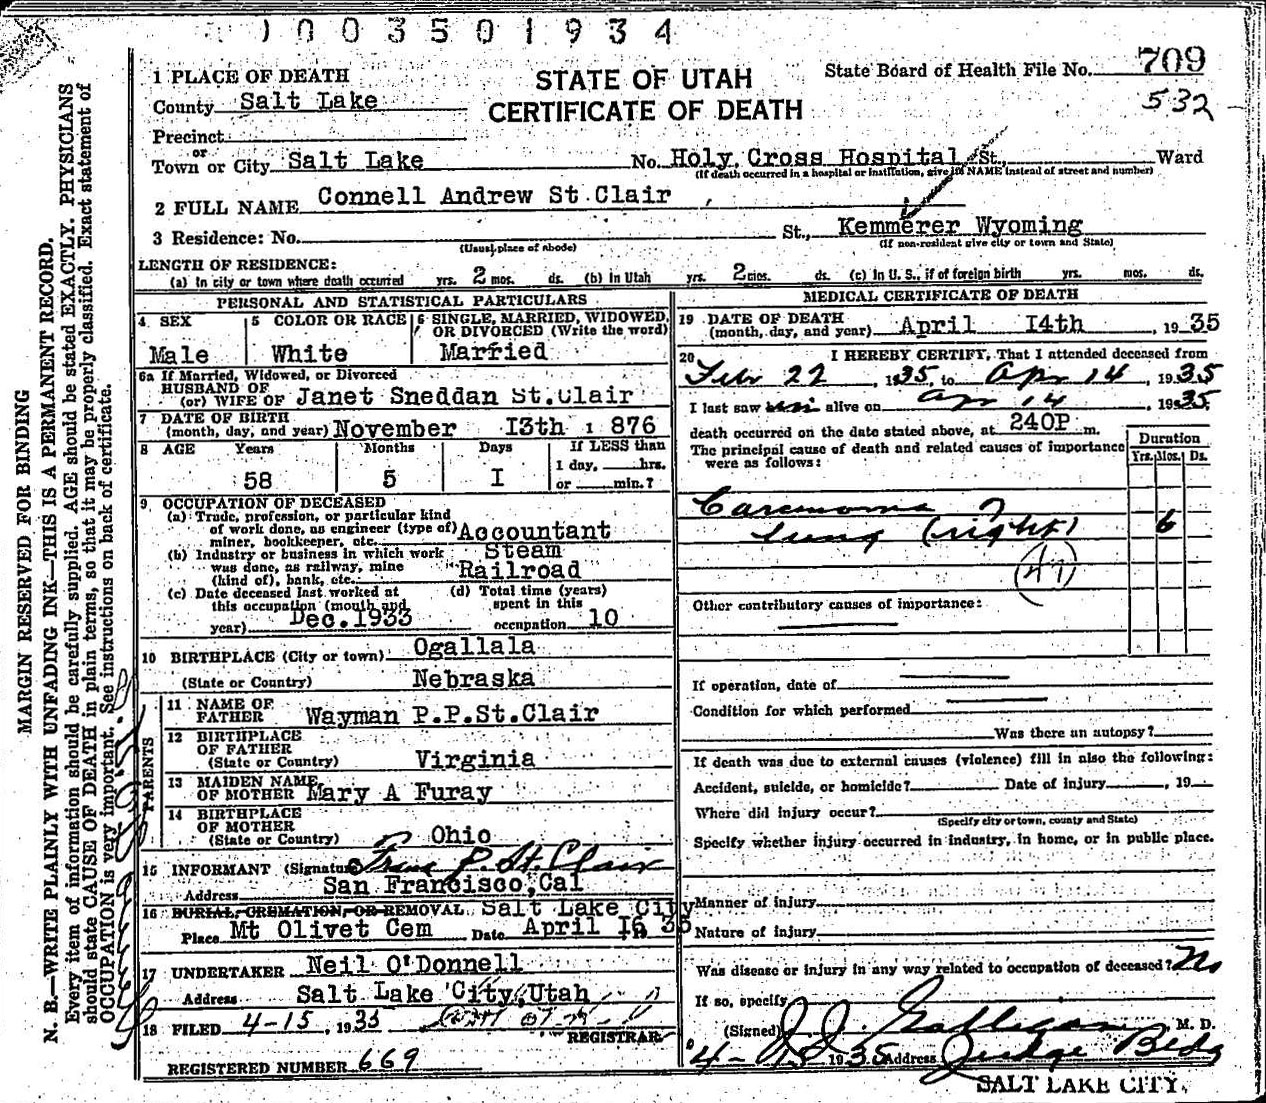 1003501934
1 PLACE OF DEATH
STATE OF UTAH
CERTIFICATE OF DEATH
State Board of Health File No. 709
532
County Salt Lake
Precinct
or
Town or City Salt Lake No. Holy Cross Hospital St., Ward
(If death occurred in a hospital or institution, give its NAME instead of street and number)
2 FULL NAME Connell Andrew St.Clair
3 Residence: No. St., Kemmerer Wyoming
(Usual place of abode) (If non-resident give city or town and State)
LENGTH OF RESIDENCE:
(a) In city or town where death occurred yrs. 2 mos. ds. (b) In Utah yrs. 2 mos. ds. (c) In U. S., if of foreign birth yrs. mos. ds.
PERSONAL AND STATISTICAL PARTICULARS
4 SEX
Male
5 COLOR OR RACE
White
6 SINGLE, MARRIED, WIDOWED,
OR DIVORCED (Write the word)
Married
6a If Married, Widowed, or Divorced
HUSBAND OF
(or) WIFE OF Janet Sneddan St.Clair
7 DATE OF BIRTH
(month, day, and year) November I3th 1 876
8 AGE Years Months Days If LESS than
1 day, hrs.
58 5 I or min.?
9 OCCUPATION OF DECEASED
(a) Trade, profession, or particular kind
of work done, as engineer (type of) Accountant
miner, bookkeeper, etc.
(b) Industry or business in which work Steam
was done, as railway, mine
(kind of), bank, etc. Railroad
(c) Date deceased last worked at
this occupation (month and
year) Dec.1933
(d) Total time (years)
spent in this
occupation 10
10 BIRTHPLACE (City or town) Ogallala
(State or Country) Nebraska
PARENTS
11 NAME OF
FATHER Wayman P.P.St.Clair
12 BIRTHPLACE
OF FATHER
(State or Country) Virginia
13 MAIDEN NAME
OF MOTHER Mary A Furay
14 BIRTHPLACE
OF MOTHER
(State or Country) Ohio
15 INFORMANT (Signature) P. St. Clair
Address San Francisco,Cal
16 BURIAL, CREMATION, OR REMOVAL Salt Lake City
Place Mt Olivet Cem Date April I6 35
17 UNDERTAKER Neil O'Donnell
Address Salt Lake City,Utah
18 FILED 4-15, 1935
REGISTRAR
REGISTERED NUMBER 669
MEDICAL CERTIFICATE OF DEATH
19 DATE OF DEATH
(month, day, and year) April I4th, 1935
20 I HEREBY CERTIFY, That I attended deceased from
Feb 22, 1935, to Apr 14, 1935
I last saw him alive on Apr 14, 1935,
death occurred on the date stated above, at 240P m.
The principal cause of death and related causes of importance
were as follows:
Duration
Yrs. Mos. Ds.
Carcinoma of
lung (right) 6
(47)
Other contributory causes of importance:
If operation, date of
Condition for which performed
Was there an autopsy?
If death was due to external causes (violence) fill in also the following:
Accident, suicide, or homicide? Date of injury, 19
Where did injury occur?
(Specify city or town, county and State)
Specify whether injury occurred in industry, in home, or in public place.
Manner of injury
Nature of injury
Was disease or injury in any way related to occupation of deceased? No
If so, specify
(Signed) J. J. Galligan M. D.
4-15 1935 Address Judge Bldg
SALT LAKE CITY.
MARGIN RESERVED FOR BINDING
N. B.—WRITE PLAINLY WITH UNFADING INK—THIS IS A PERMANENT RECORD.
Every item of information should be carefully supplied. AGE should be stated EXACTLY. PHYSICIANS
should state CAUSE OF DEATH in plain terms, so that it may be properly classified. Exact statement of
OCCUPATION is very important. See instructions on back of certificate.